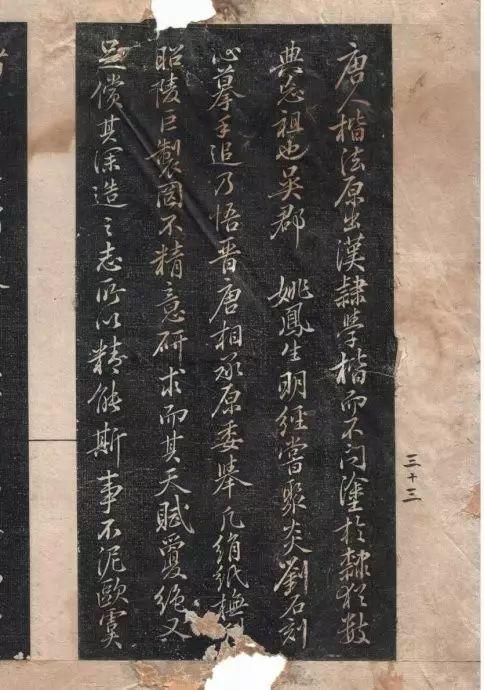 三十三
唐人楷法原出漢隸學楷而不問塗於隸猶數
典忘祖也吳郡 姚鳳生明經嘗聚炎劉石刻
心摹手追乃悟晉唐相承原委舉凡絹紙橅
昭陵巨製罔不精意研求而其天賦夐絕又
足償其深造之志所以精能斯事不泥歐虞